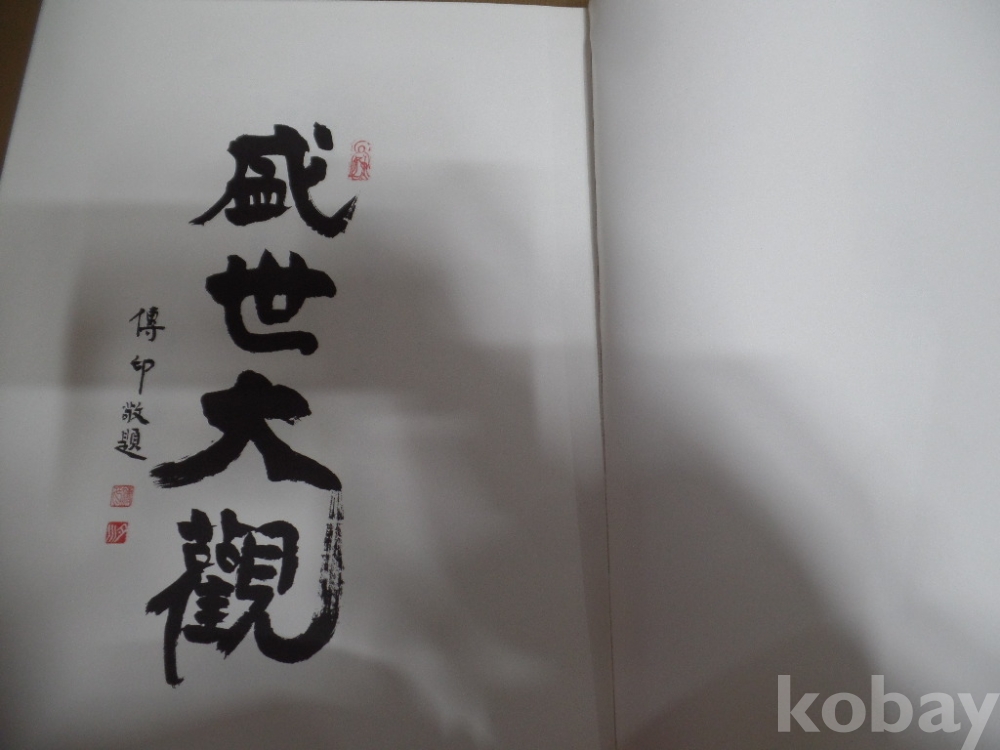 盛世大觀
傳印敬題
kobay